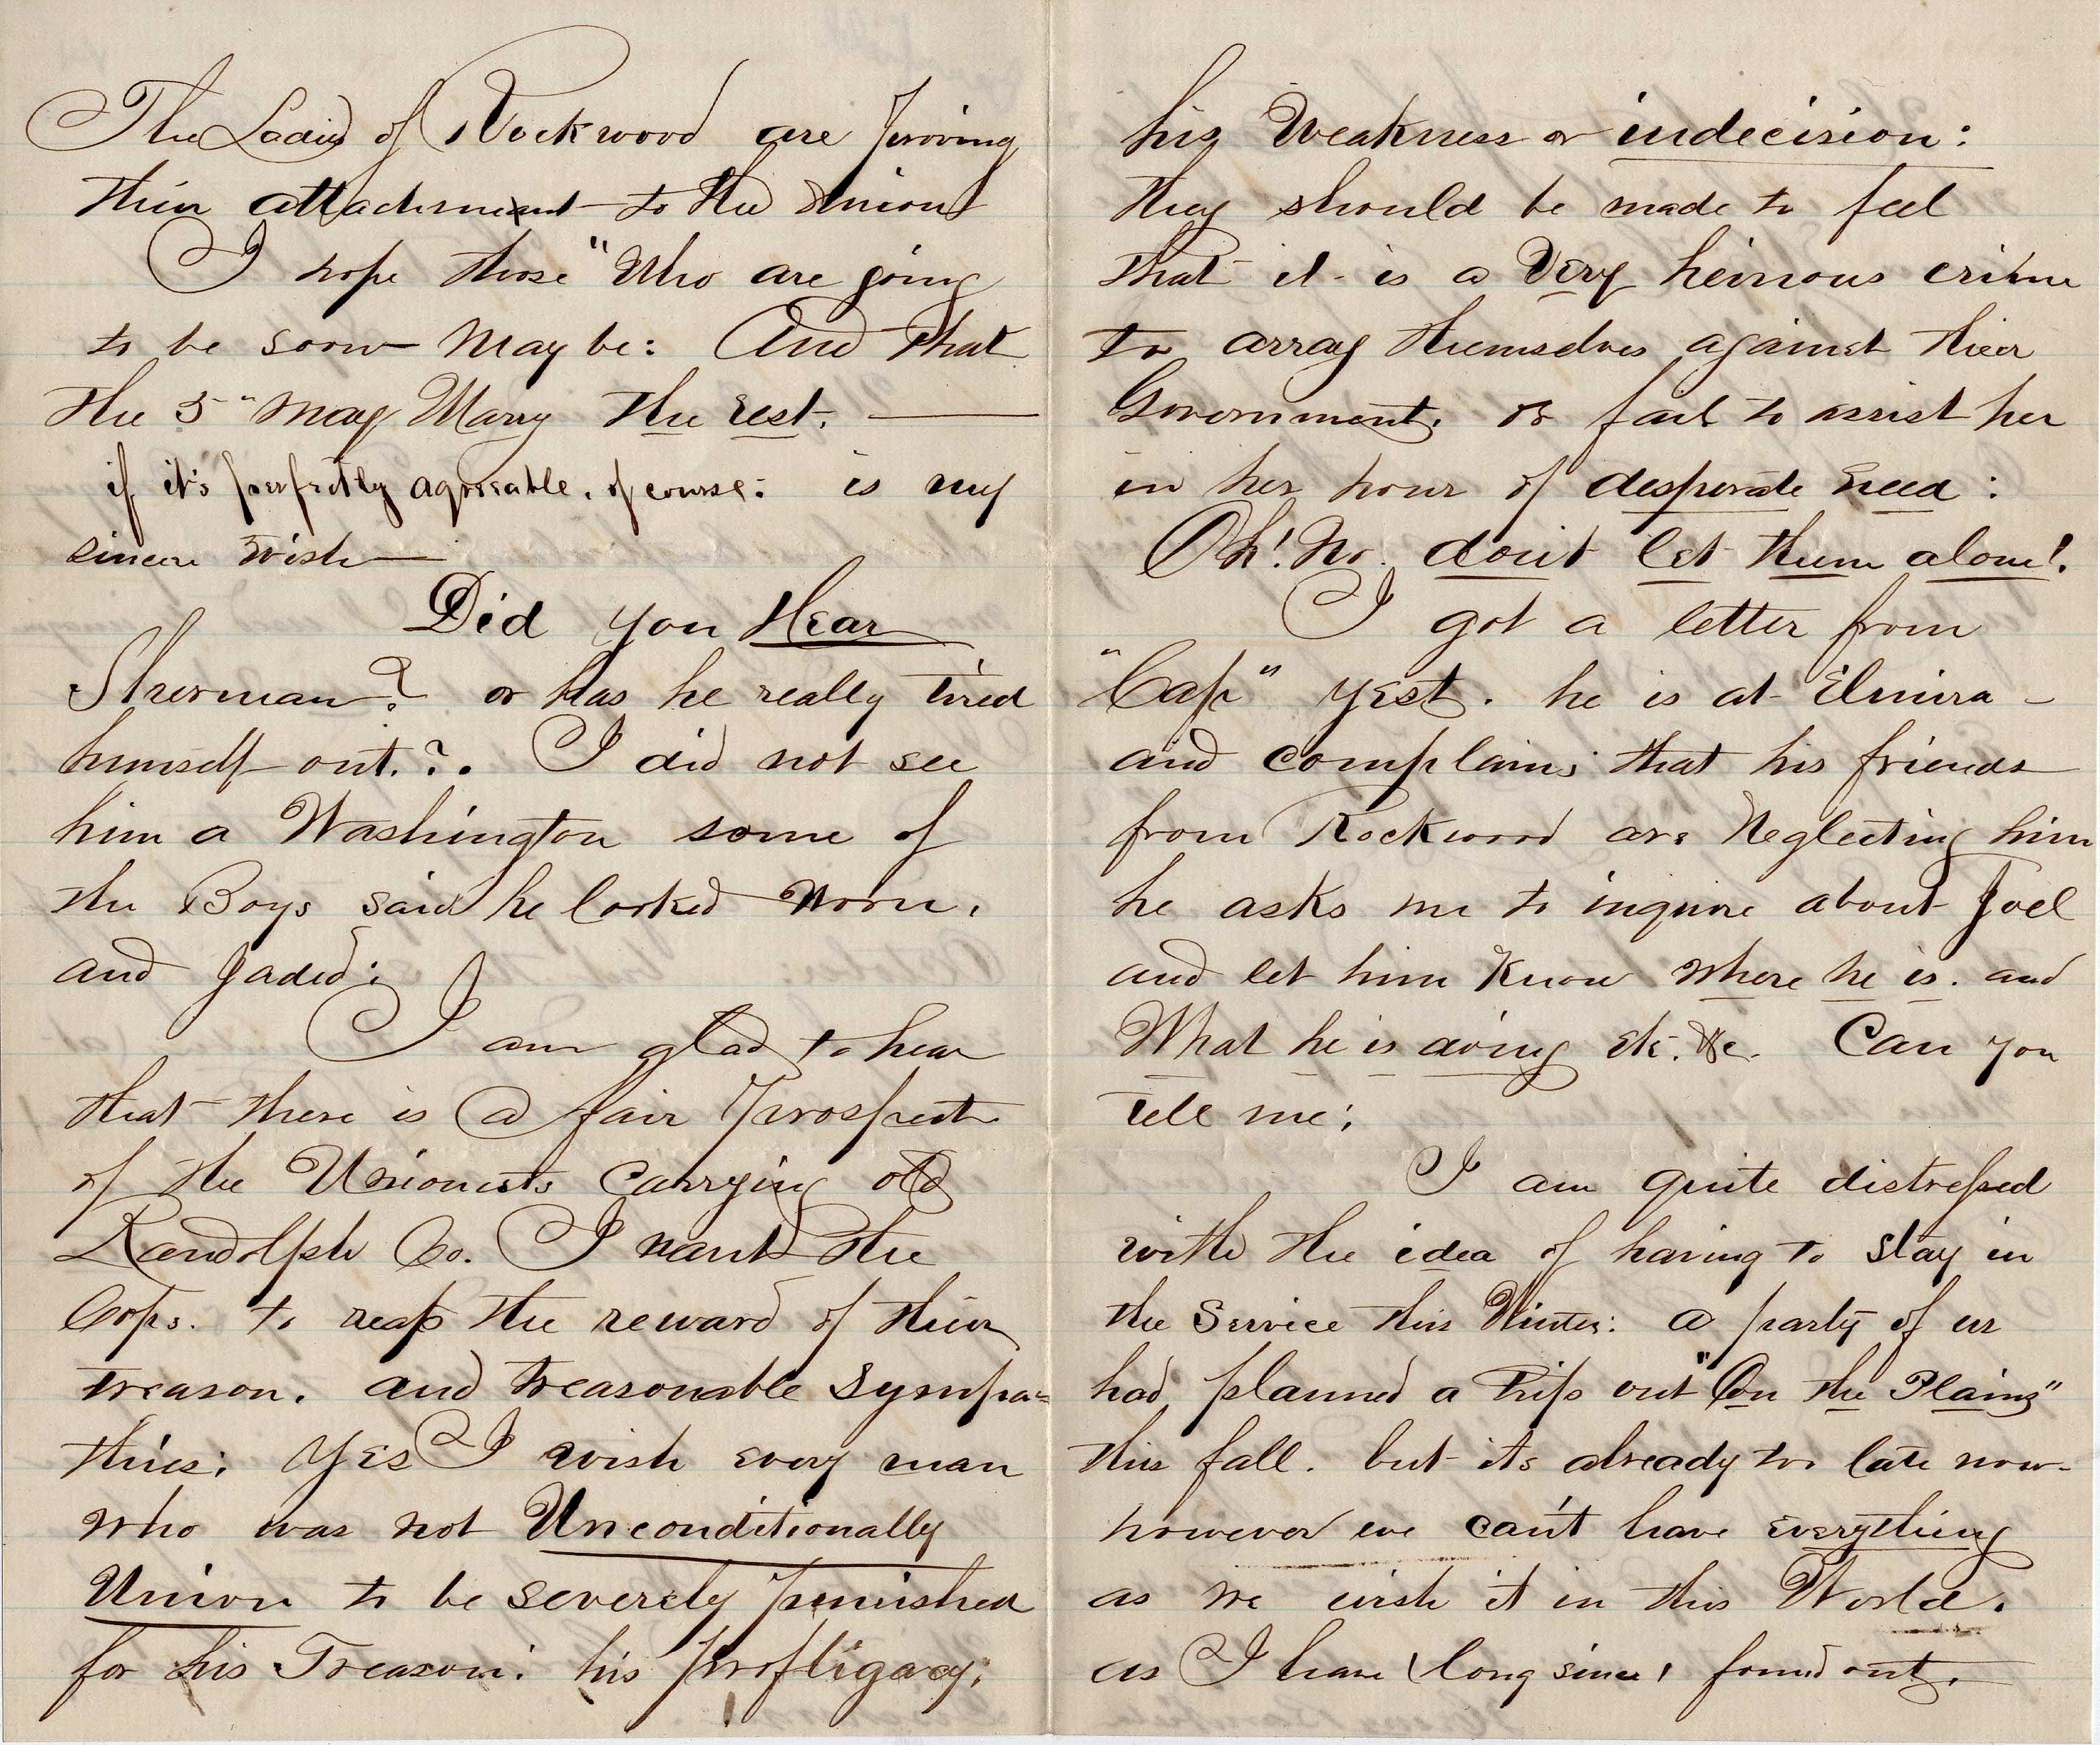 The Ladies of Rockwood are proving
their attachment to the Union
I hope those "Who are going
to be soon may be: And that
the 5" may Marry the rest.
if it's perfectly agreeable, of course: is my
sincere wish
Did you Hear
Sherman? or has he really tired
himself out.?. I did not see
him a Washington some of
the Boys said he looked worn,
and jaded:
I am glad to hear
that there is a fair prospect
of the Unionists carrying old
Randolph Co. I want the
Cops. to reap the reward of their
treason. and treasonable sympa=
thies: Yes I wish every man
who was not Unconditionally
Union to be severely punished
for his Treason: his profligacy:
his Weakness or indecision:
they should be made to feel
that it is a Very heinous crime
to array themselves against their
Government. or fail to assist her
in her hour of desperate need:
Oh! No. don't let them alone!.
I got a letter from
"Cap" yest. he is at Elmira -
and complains that his friends
from Rockwood are Neglecting him
he asks me to inquire about Joel
and let him Know where he is. and
What he is doing etc. &c. Can you
tell me:
I am quite distressed
with the idea of having to stay in
the Service this Winter: a party of us
had planned a Trip out "On the Plains"
this fall. but its already too late now-
however we can't have everything
as we wish it in this World.
as I have (long since) found out.